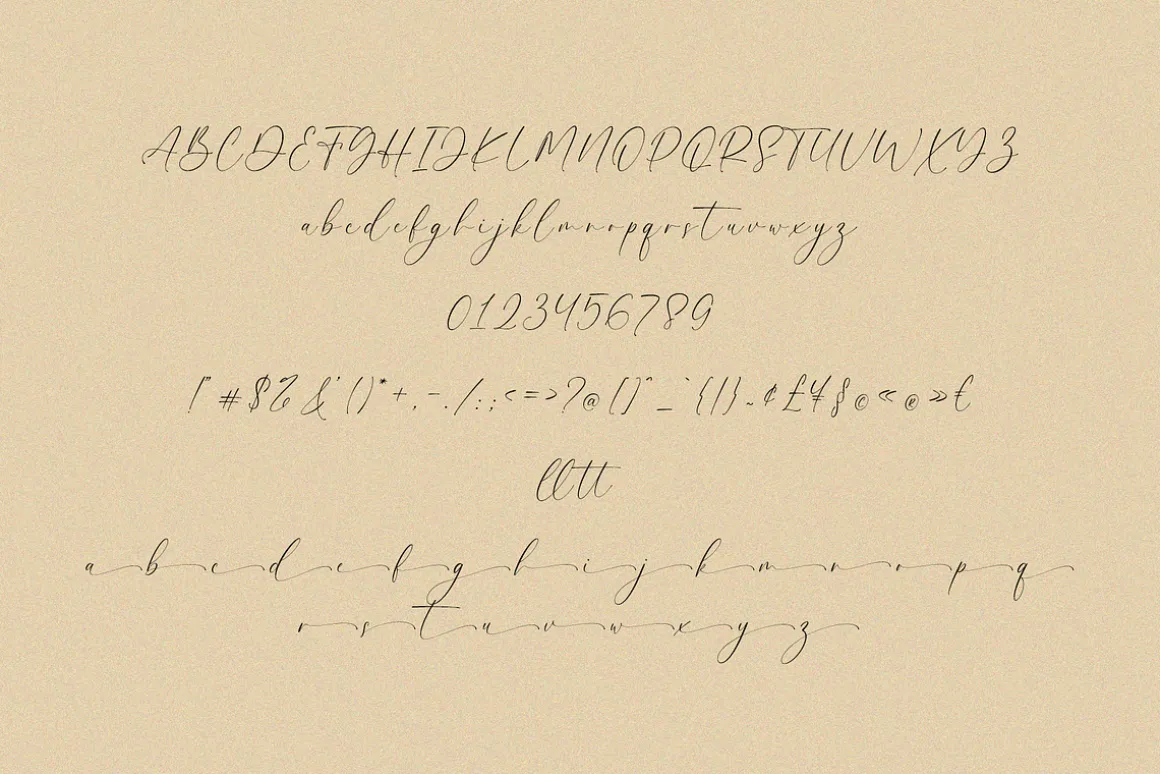 ABCDEFGHIJKLMNOPQRSTUVWXYZ
abcdefghijklmnopqrstuvwxyz
0123456789
!"#$%&'()*+,-./:;<=>?@[]^_`{|}~¢£¥§©«®»€
lltt
abcdefghijkmnopq
rstuvwxyz